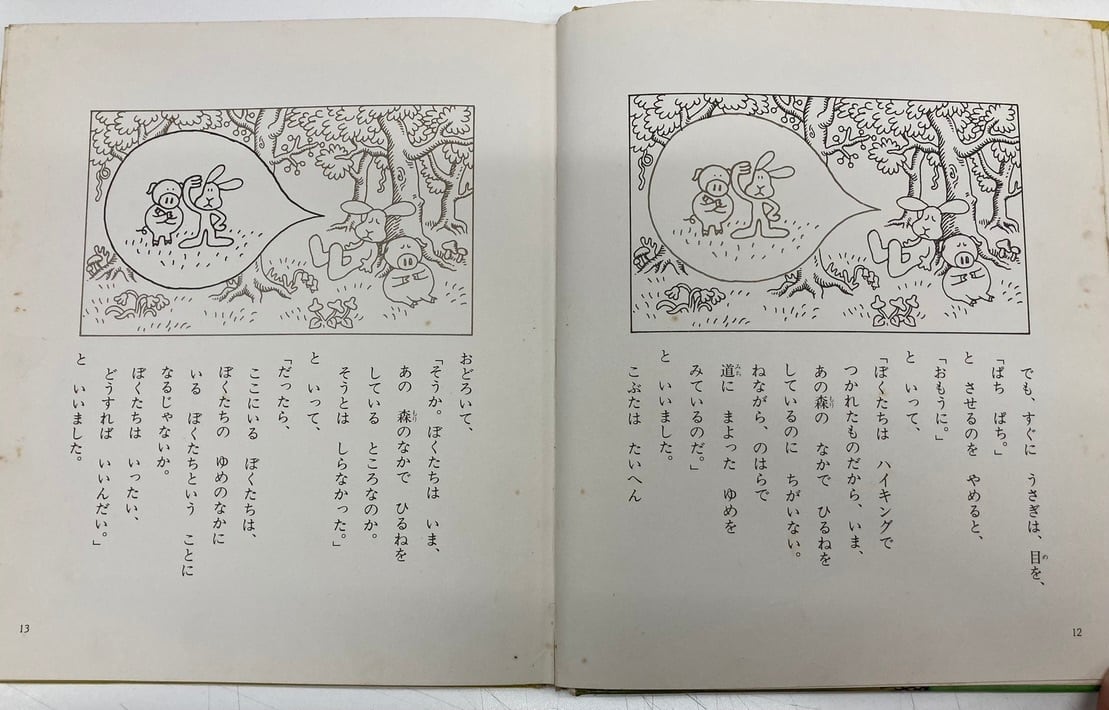 でも、すぐに うさぎは、目を、
「ぱち ぱち。」
と させるのを やめると、
「おもうに。」
と いって、
「ぼくたちは ハイキングで
つかれたものだから、いま、
あの森の なかで ひるねを
しているのに ちがいない。
ねながら。のはらで
道に まよった ゆめを
みているのだ。」
と いいました。
こぶたは たいへん
12
おどろいて、
「そうか。ぼくたちは いま、
あの 森のなかで ひるねを
している ところなのか。
そうとは しらなかった。」
と いって、
「だったら、
ここにいる ぼくたちは、
ぼくたちの ゆめのなかに
いる ぼくたちという ことに
なるじゃないか。
ぼくたちは いったい、
どうすれば いいんだい。」
と いいました。
13